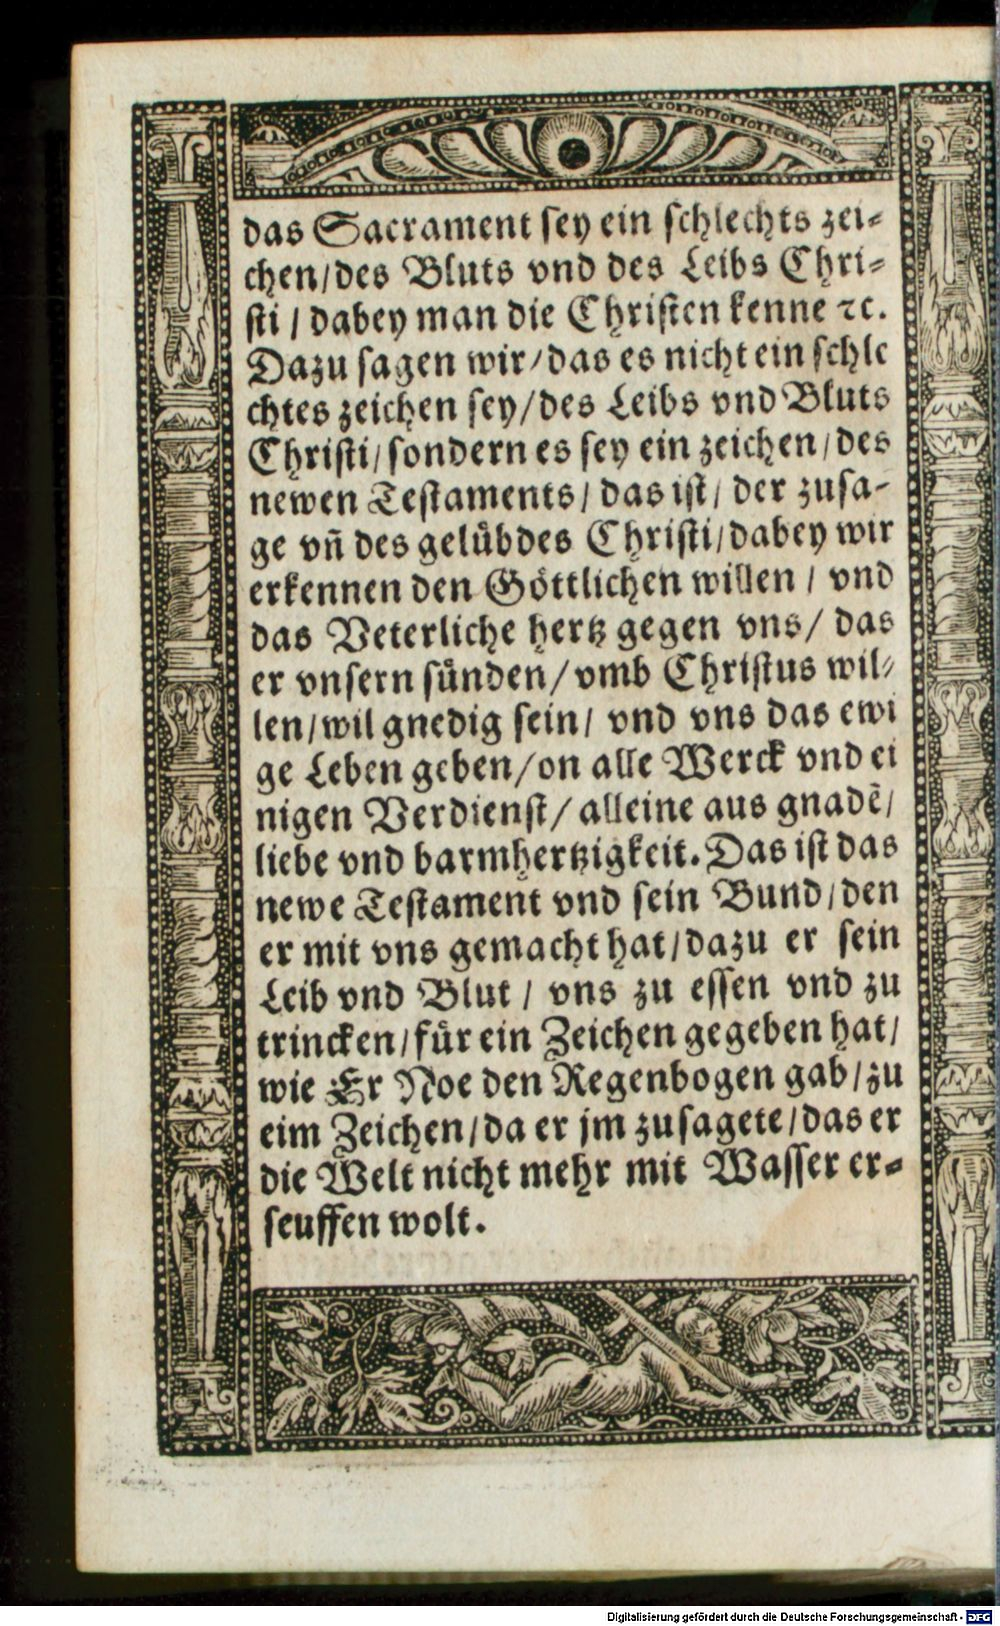 das Sacrament sey ein schlechts zei⸗
chen/des Bluts vnd des Leibs Chri⸗
sti / dabey man die Christen kenne ꝛc.
Dazu sagen wir/das es nicht ein schle
chtes zeichen sey/des Leibs vnd Bluts
Christi/sondern es sey ein zeichen/des
newen Testaments/ das ist/ der zusa-
ge vñ des gelübdes Christi/dabey wir
erkennen den Göttlichen willen / vnd
das Veterliche hertz gegen vns/ das
er vnsern sünden/vmb Christus wil⸗
len/wil gnedig sein/ vnd vns das ewi
ge Leben geben/on alle Werck vnd ei
nigen Verdienst/ alleine aus gnadē/
liebe vnd barmhertzigkeit. Das ist das
newe Testament vnd sein Bund/den
er mit vns gemacht hat/dazu er sein
Leib vnd Blut / vns zu essen vnd zu
trincken/für ein Zeichen gegeben hat/
wie Er Noe den Regenbogen gab/zu
eim Zeichen/da er jm zusagete/das er
die Welt nicht mehr mit Wasser er⸗
seuffen wolt.
Digitalisierung gefördert durch die Deutsche Forschungsgemeinschaft - DFG